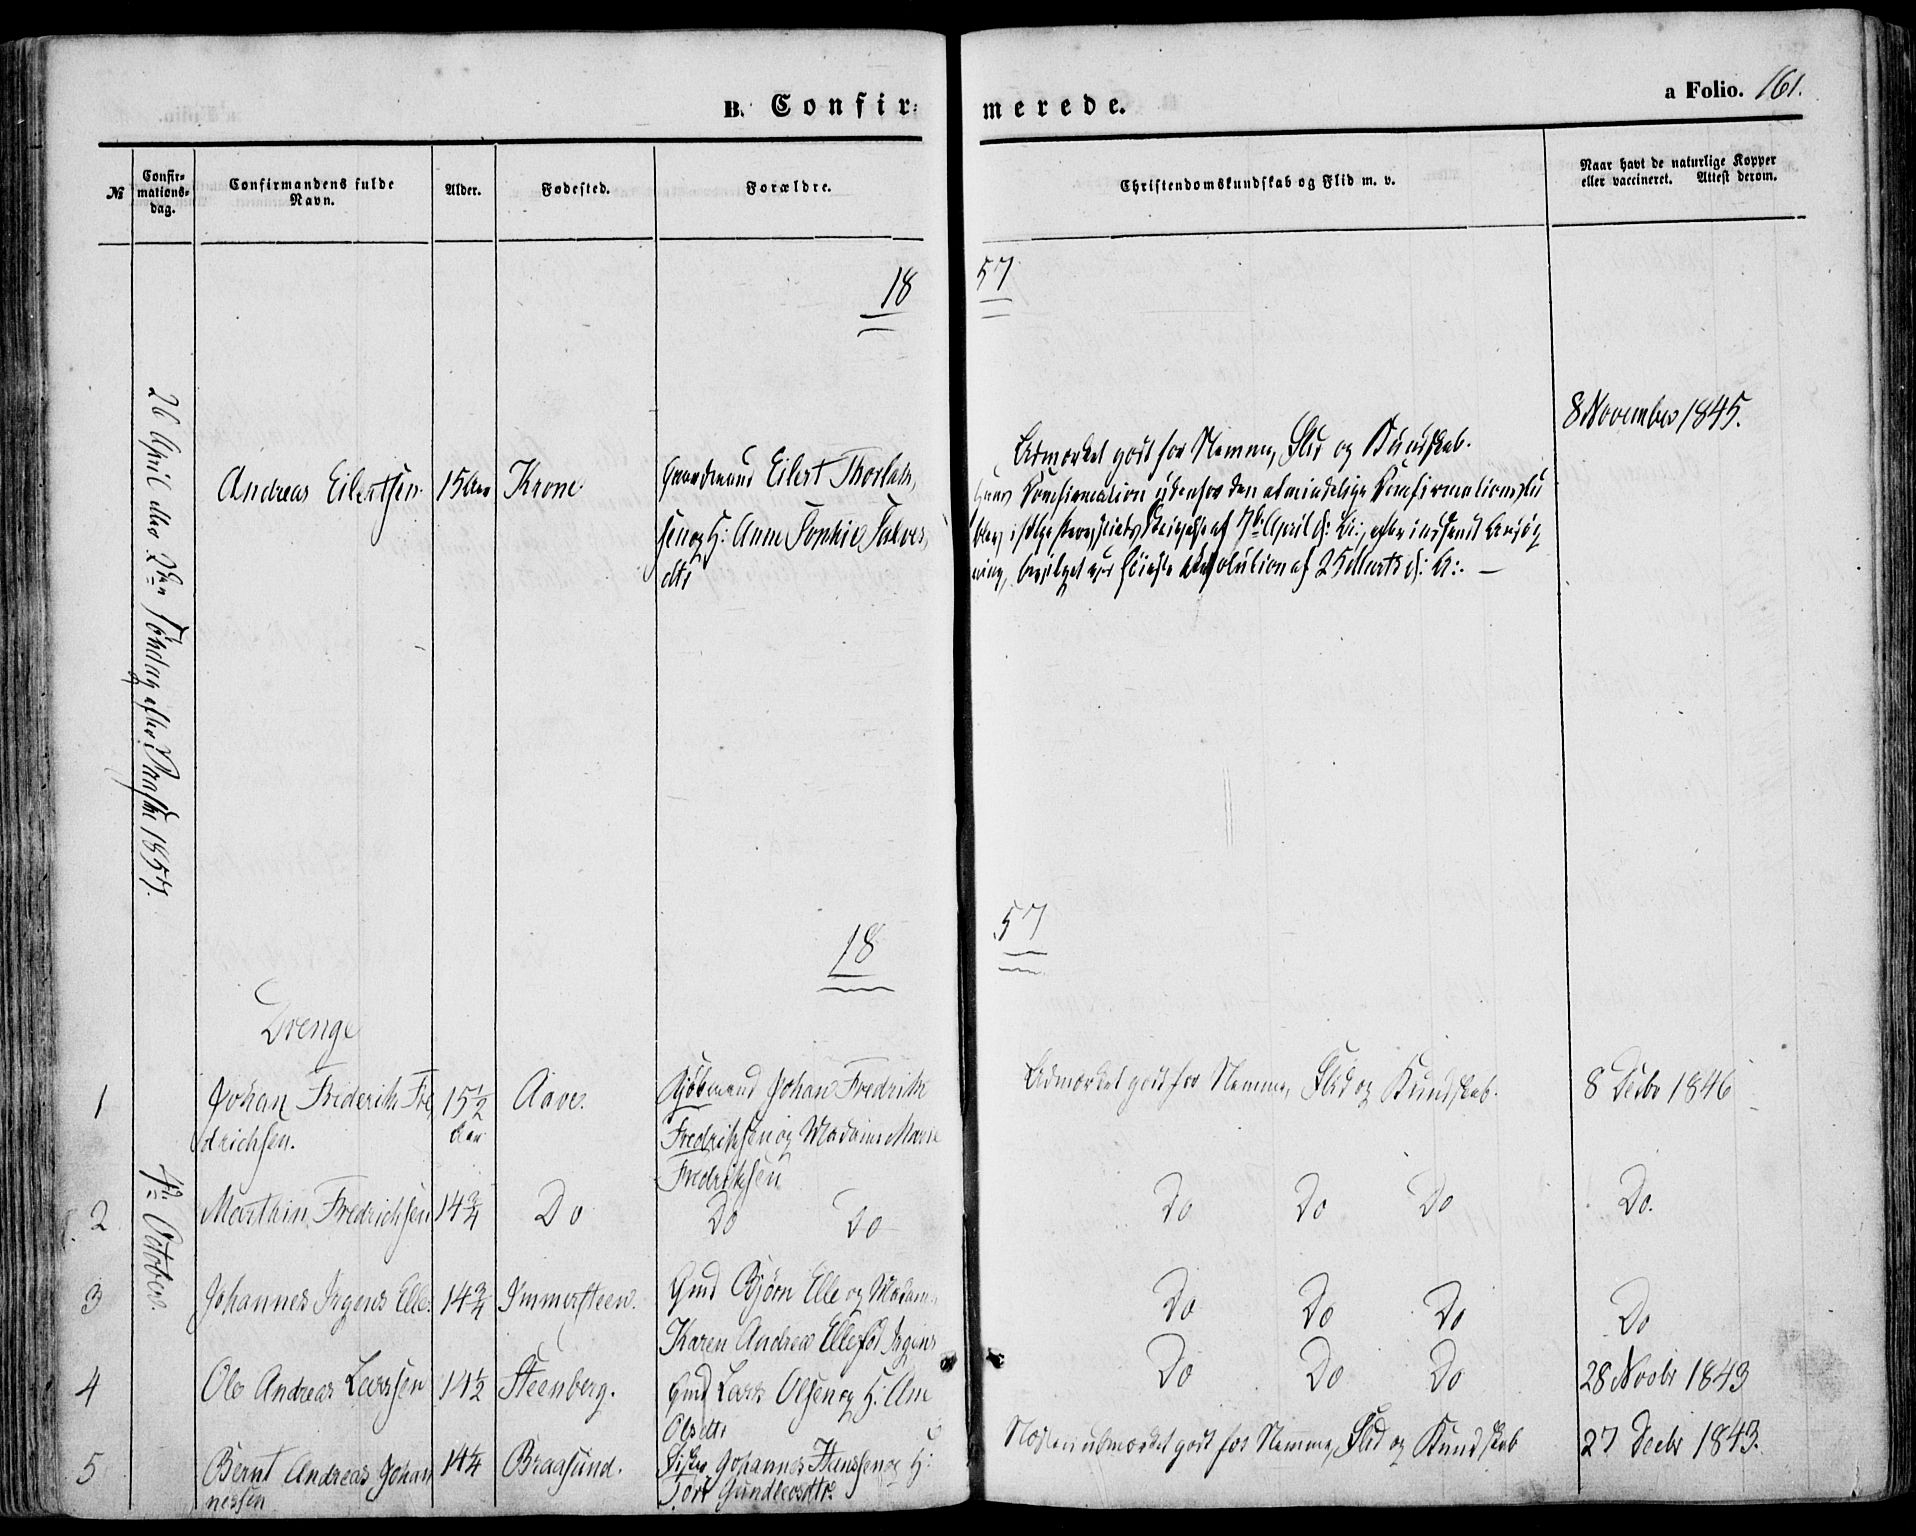 B. Confir=merede.
a Folio. 161.
№
Confir-
mations-
dag.
Confirmandens fulde
Navn.
Alder.
Fødested.
Forældre.
Christendomskundskab og Flid m. v.
Naar havt de naturlige Kopper
eller vaccineret. Attest derom.
18 57
26 April eller 2den Søndag efter Paaske 1857.
Andreas Eilertsen
15 Aar
Krone
Gaardmand Eilert Thorlak,
sen og H: Anne Sophie Salves,
dtr
Udmærket godt for Nemme, Flid og Kundskab.
Hans Konfirmation udenfor den almindelige Konfirmationstid
blev, ifølge af 7de April d: A:, efter indsendt Ansøg
ning, bevilget ved høieste Resolution af 25 Marts d: A: —
8 November 1845.
18 57
Drenge
4de October
1
Johan Friderik Fre
drichsen.
15 1/2
Aar
Aave.
Kjøbmand Johan Fredrik
Fredriksen og Madame Marie
Fredriksen
Udmærket godt for Nemme, Flid og Kundskab.
8 Decbr 1846
2
Marthin Fredrichsen
14 3/4
Do
Do Do
Do Do Do
Do.
3
Johannes Irgens Elle
14 3/4
Immersteen.
Gmd Bjørn Elle og Madam
Karen Andrea Elle fød Irgens
Do Do Do
Do
4
Ole Andreas Larsen
14 1/2
Steenberg.
Gmd Lars Olsen og H: Ane
Olsdtr
Do Do Do
28 Novbr 1843
5
Bernt Andreas Johan
nessen
14 1/4
Braasund.
Fisker Johannes Hanssen og H:
Tort Gundleosdtr
Næsten udmærket godt for Nemme, Flid og Kundskab
27 Decbr 1843.